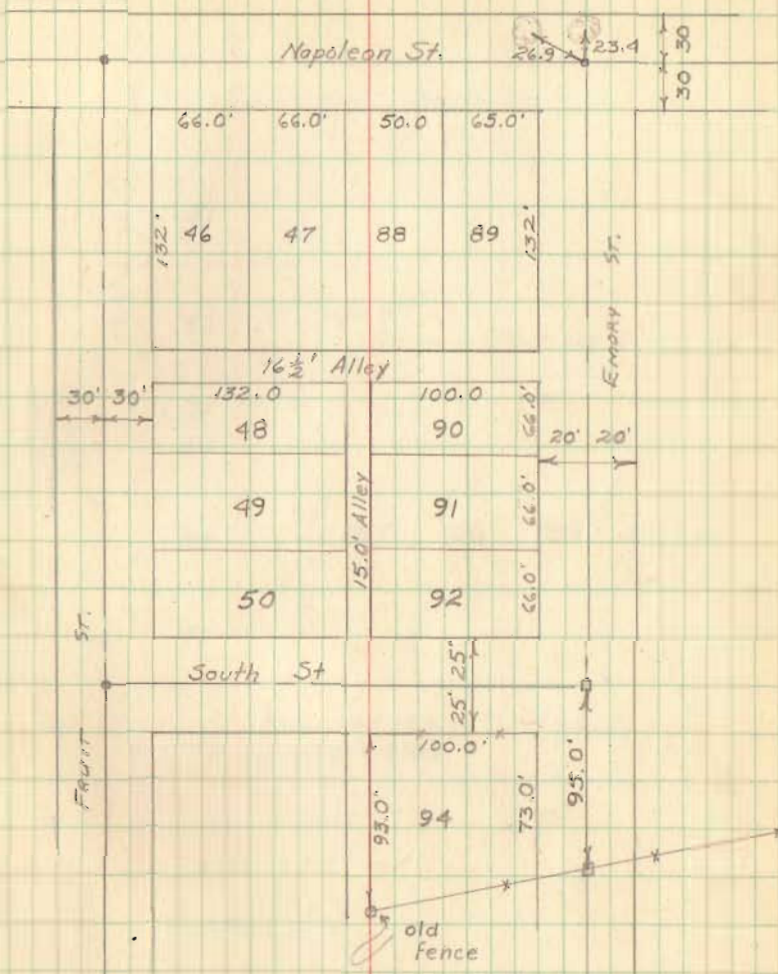 Napoleon St.
26.9
23.4
30
30
66.0'
66.0'
50.0
65.0'
132'
46
47
88
89
132'
EMORY ST.
16½' Alley
30'
30'
132.0
100.0
48
90
66.0'
20'
20'
49
15.0' Alley
91
66.0'
50
92
66.0'
FRUIT ST.
South St
25'
25'
100.0'
93.0'
94
73.0'
95.0'
old
Fence